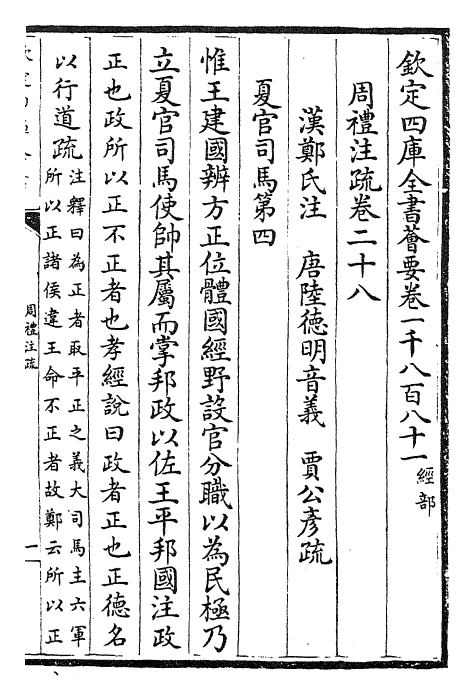 欽定四庫全書薈要卷一千八百八十一 經部
周禮注疏卷二十八
漢鄭氏注 唐陸德明音義 賈公彥疏
夏官司馬第四
惟王建國辨方正位體國經野設官分職以為民極乃
立夏官司馬使帥其屬而掌邦政以佐王平邦國注政
正也政所以正不正者也孝經說曰政者正也正德名
以行道疏注釋曰為正者取平正之義大司馬主六軍
所以正諸侯違王命不正者故鄭云所以正
周禮注疏
一